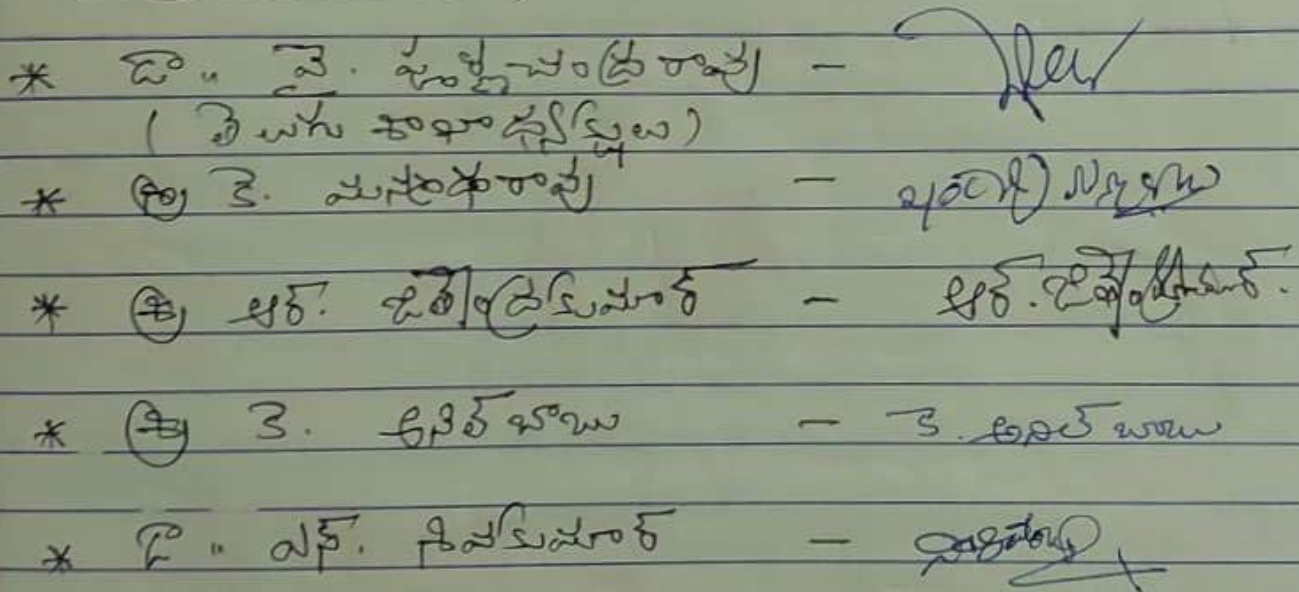 * డా" వై. పూర్ణచంద్రరావు -
(తెలుగు శాఖాధ్యక్షులు)
* శ్రీ కె. మన్మథరావు -
* శ్రీ ఆర్. జితేంద్రకుమార్ - ఆర్. జితేంద్రకుమార్.
* శ్రీ కె. అనిల్ బాబు - కె. అనిల్ బాబు
* డా" ఎన్. శివకుమార్ -